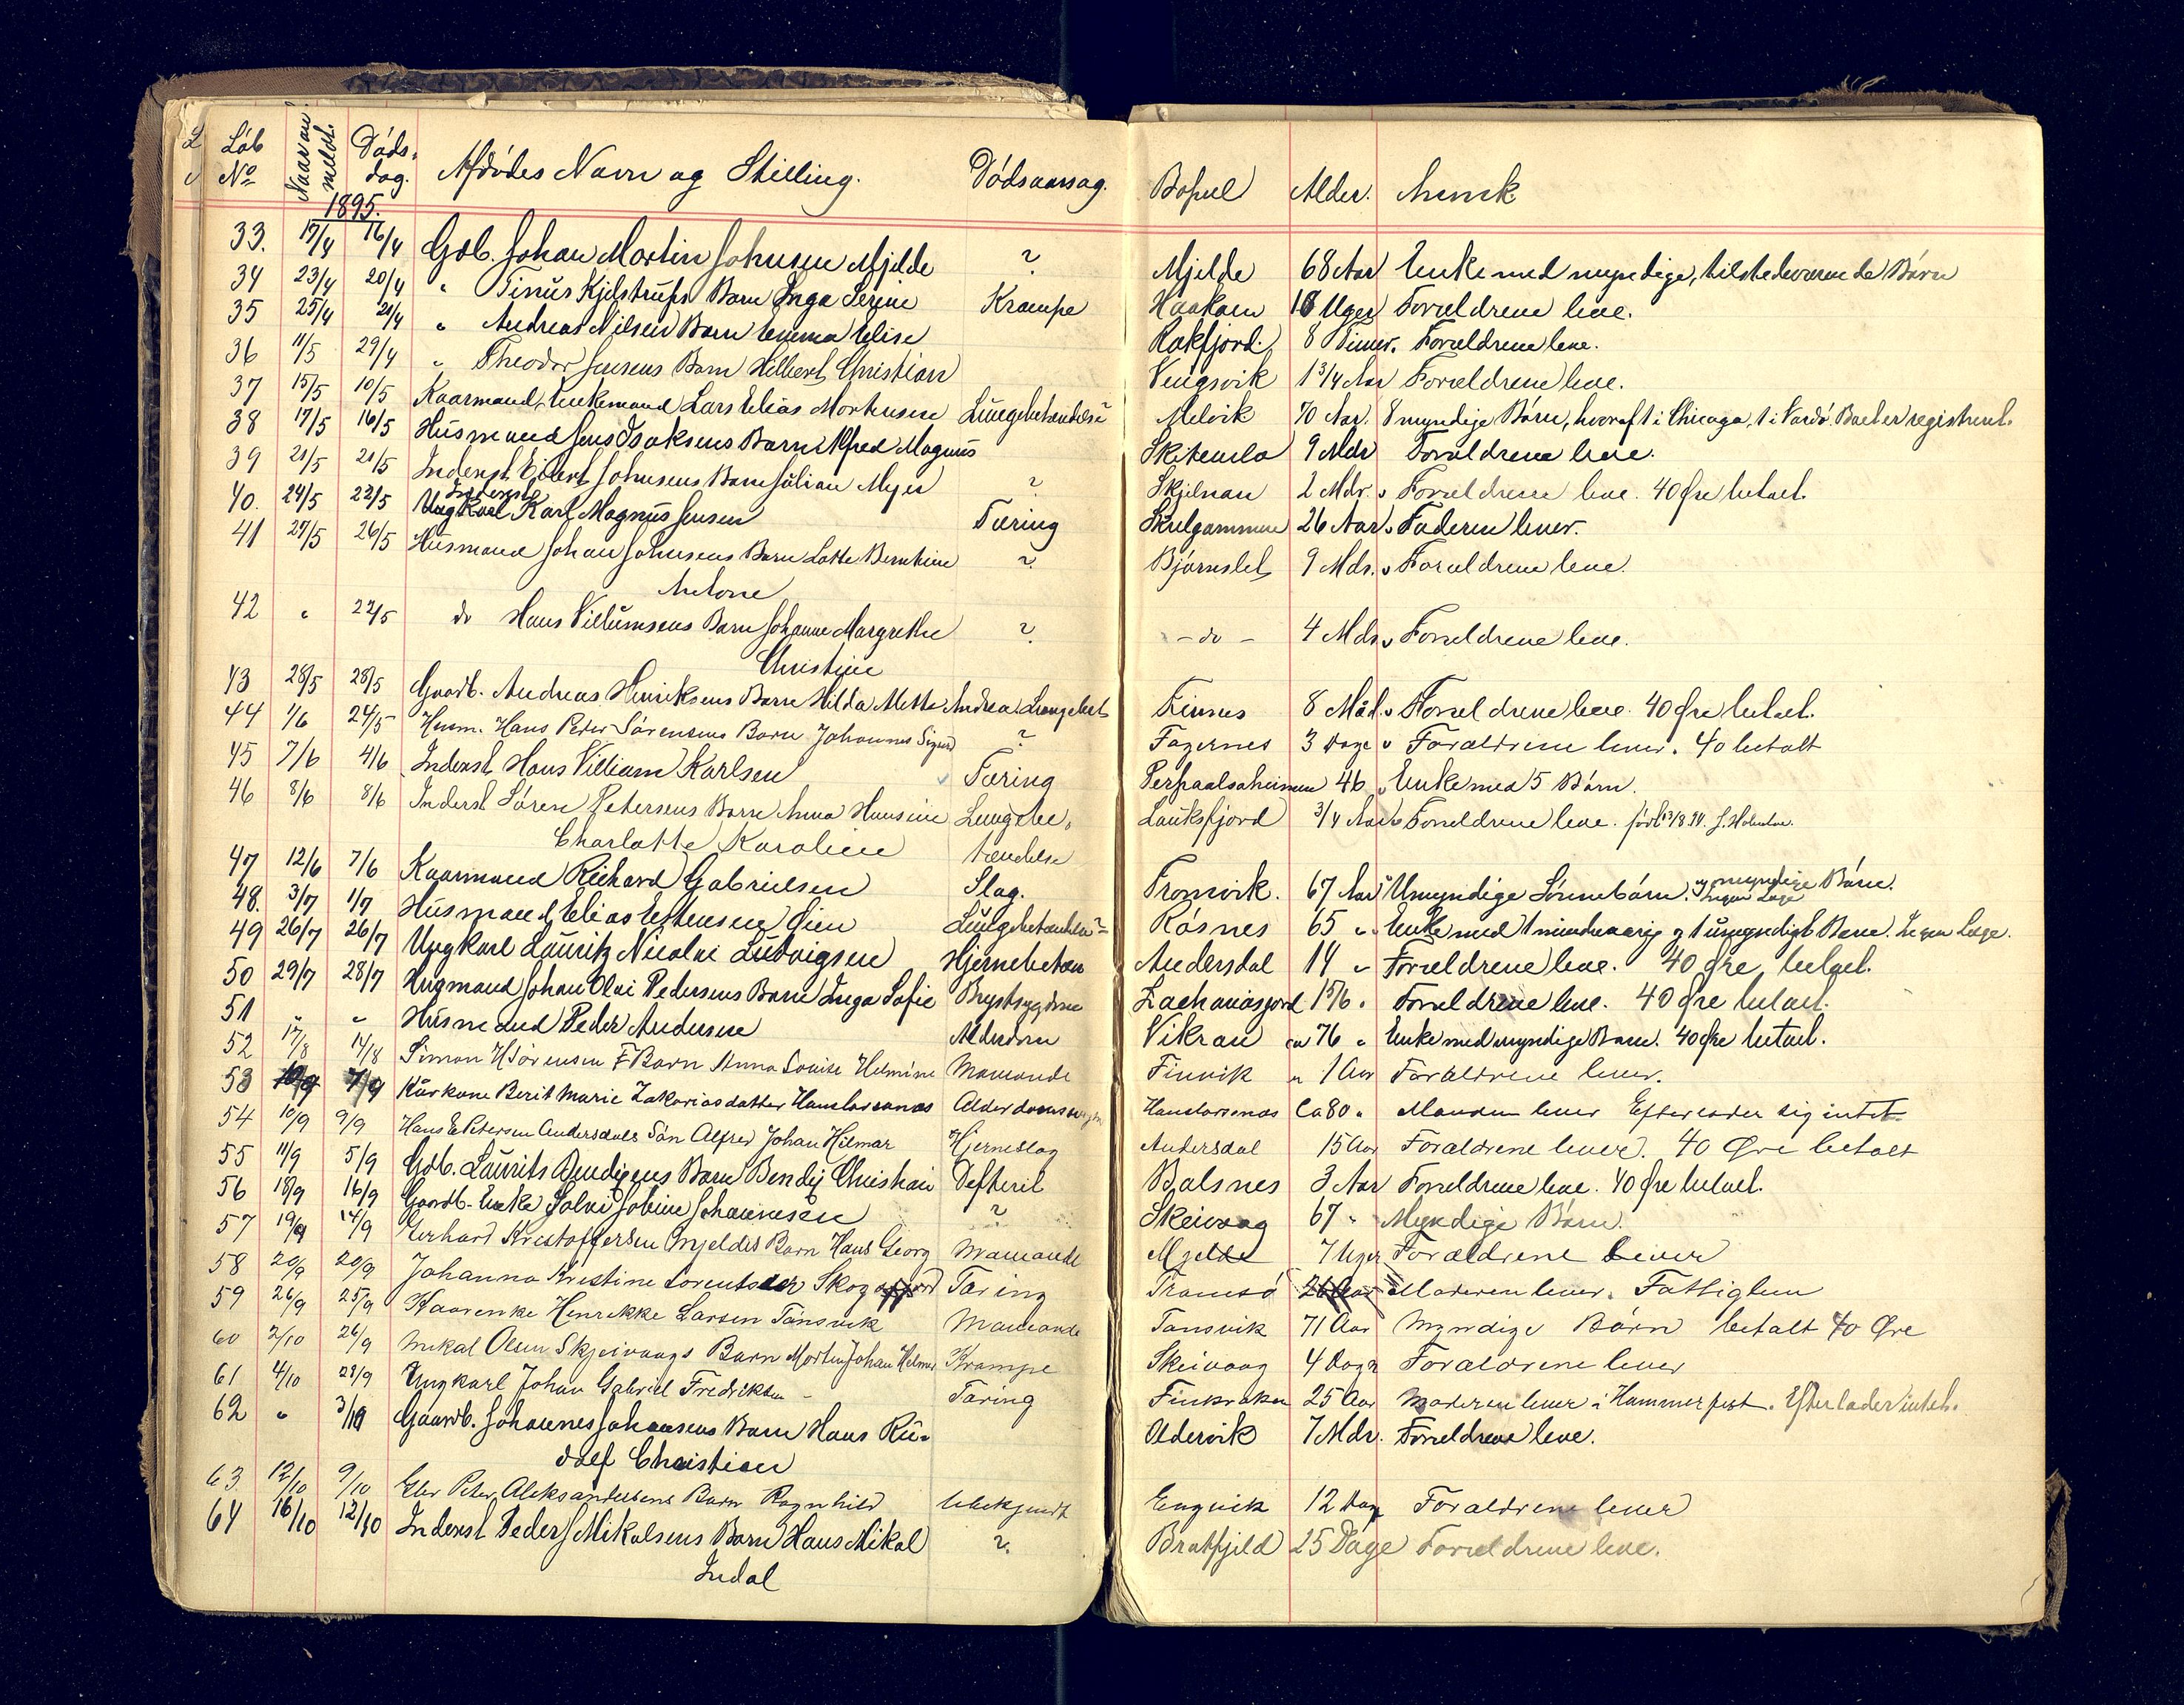 Löb No Naar anmeldt. Döds-dag. Afdödes Navn og Stilling. Dödsaarsag. Bopæl Alder. Anmk
1895.
33. 17/4 16/4 Gdb. Johan Martin Johnsen Mjelde ? Mjelde 68 Aar Enke med myndige, tilstedeværende Börn
34 23/4 20/4 " Tinus Kjilstrups Barn Inga Serine Krampe Haakøen 18 Uger Forældrene leve.
35 25/4 21/4 " Andreas Nilsens Barn Emma Elise Rakfjord 8 Timer. Forældrene leve.
36 11/5 29/4 " Theodor Jensens Barn Hilbert Christian Vengsvik 1 3/4 Aar Forældrene leve.
37 15/5 10/5 Kaarmand, Enkemand Lars Elias Mortensen Lungebetændelse Melvik 70 Aar. 8 myndige Börn, hvoraf 1 i Chicago, 1 i Vardö. Boet er registreret.
38 17/5 16/5 Husmand Jens Isaksens Barn Alfred Magnus Skitenelv 9 Mdr Forældrene leve.
39 21/5 21/5 Inderst Eilert Johnsens Barn Julian Meyer ? Skjelnan 2 Mdr. Forældrene leve. 40 Øre betalt.
40. 24/5 22/5 Ungkarl Inderst Karl Magnus Jensen Tæring Skulgammen 26 Aar Faderen lever.
41 27/5 26/5 Husmand Johan Johnsens Barn Lotte Berntine ? Björnslet 9 Mdr. Forældrene leve.
Antone
42 " 22/5 do Hans Villumsens Barn Johanne Margrethe ? - do - 4 Mdr Forældrene leve.
Christine
43 28/5 28/5 Gaardb. Andreas Henriksens Barn Hilda Mette Andrea Lungebet Finnes 8 Mdr Forældrene leve. 40 Øre betalt.
44 1/6 24/5 Husm. Hans Peder Sörensens Barn Johannes Sigurd ? Fagernes 3 Dage Forældrene lever. 40 betalt
45 7/6 4/6 Inderst Hans Villiam Karlsen Tæring 46 Enke med 5 Börn.
46 8/6 8/6 Inderst Sören Petersens Barn Anna Hansine Lungebe- Lauksfjord 3/4 Aar Forældrene leve. född 13/8 94.
Charlotte Karoline tændelse
47 12/6 7/6 Kaarmand Richard Gabrielsen Slag. Tromvik. 67 Aar Umyndige Sönnebörn. og myndige Börn. Ingen Læge
48. 3/7 1/7 Husmand Elias Estensen Lungebetændelse Rösnes 65 " Enke med 1 mindreaarig og 1 umyndigt Barn. Ingen Læge.
49 26/7 26/7 Ungkarl Lauritz Nicolai Ludvigsen Hjernebetæn Andersdal 14 " Forældrene leve. 40 Øre betalt.
50 29/7 28/7 Ungmand Johan Olai Pedersens Barn Inga Sofie Brystsygdom Zachariasjord 1 5/6 " Forældrene leve. 40 Øre betalt.
51 " " Husmand Peder Andersen Alderdom Vikran 76 " Enke med myndige Barn. 40 Øre betalt.
52 17/8 14/8 Simon H Sörensen F Barn Anna Lovise Helmine Maveonde Finvik 1 Aar Forældrene lever.
53 10/9 7/9 Kårkone Berit Marie Zakariasdatter Hanslarsanes Alderdomssvaghed Hanslarsenæs Ca 80 " Manden lever Efterlader sig intet
54 10/9 9/9 Hans E Petersen Andersdals Sön Alfred Johan Hilmar Hjerneslag Andersdal 15 Aar Forældrene lever. 40 Øre betalt
55 11/9 5/9 Gdb. Laurits Bendigens Barn Bendij Christian Defterit Balsnes 3 Aar Forældrene leve. 40 Øre betalt.
56 18/9 16/9 Gaardb. Enke Solvi Jobine Johannesen ? Skeivaag 67 " Myndige Börn.
57 19/9 14/9 Gerhard Kristoffersen Mjeldes Barn Hans Georg Maveonde Mjelde 7 Uger Forældrene lever
58 20/9 20/9 Johanna Kristine Lorentsder Skogsfjord Tæring Tromsö 26 Aar Moderen lever. Fattiglem
59 26/9 25/9 Kaarenke Henrikke Larsen Tönsvik Maveonde Tønsvik 71 Aar Myndige Börn betalt 40 Øre
60 2/10 26/9 Mikal Olsen Skjeivaags Barn Morten Johan Helmer Krampe Skeivaag 4 Dage Forældrene lever
61 4/10 28/9 Ungkarl Johan Gabriel Fredriksen Tæring Finkroken 25 Aar Moderen lever i Hammerfest. Efterlader intet.
62 " 3/10 Gaardb. Johannes Johansens Barn Hans Ru- Oldervik 7 Mdr. Forældrene leve.
dolf Christian
63 12/10 9/10 Eler Peter Aleksandersens Barn Ragnhild Ubekjendt Engvik 12 Dage Forældrene lever
64 16/10 12/10 Inderst Peder J Mikalsens Barn Hans Mikal ? Bratfjeld 25 Dage Forældrene leve.
Indal